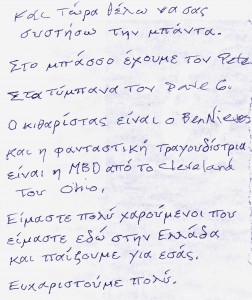 και τώρα θέλω να σας
συστήσω την μπάντα.
Στο μπάσσο έχουμε τον Pete
Στα τύμπανα τον Dave G.
Ο κιθαρίστας είναι ο Ben Nieves
και η φανταστική τραγουδίστρια
είναι η MBD από το Cleveland
του Ohio.
Είμαστε πολύ χαρούμενοι που
είμαστε εδώ στην Ελλάδα
και παίζουμε για εσάς.
Ευχαριστούμε πολύ.